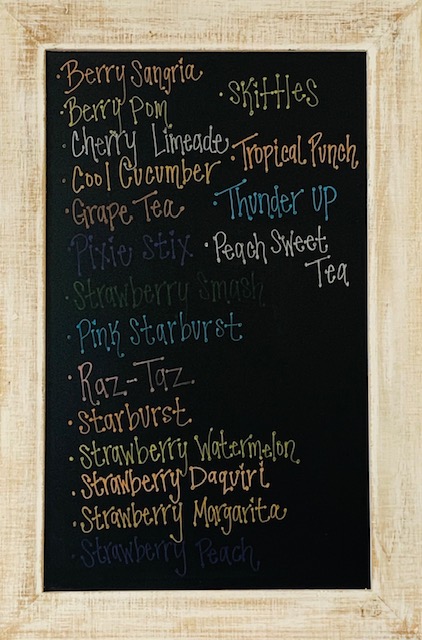 · Berry Sangria
· Berry Pom
· Cherry Limeade
· Cool Cucumber
· Grape Tea
· Pixie Stix
· Strawberry Smash
· Pink Starburst
· Raz-Taz
· Starburst
· Strawberry Watermelon
· Strawberry Daquiri
· Strawberry Margarita
· Strawberry Peach
· Skittles
· Tropical Punch
· Thunder Up
· Peach Sweet
Tea